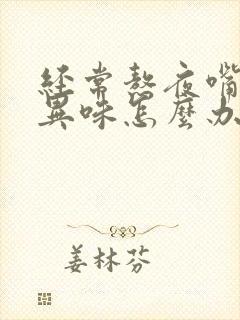 經常熬夜嘴
異味怎麼办
姜林芬